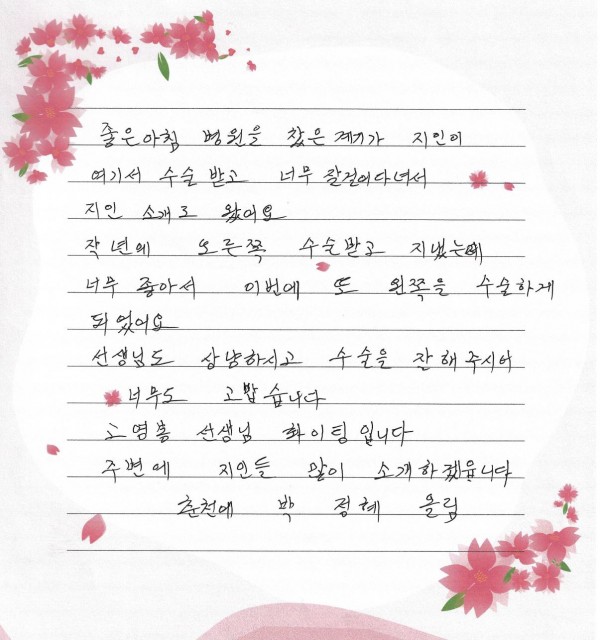 좋은아침 병원을 찾은 계기가 지인이
여기서 수술 받고 너무 잘걸어다녀서
지인 소개로 왔어요
작년에 오른쪽 수술받고 지냈는데
너무 좋아서 이번에 또 왼쪽을 수술하게
되었어요
선생님도 상냥하시고 수술을 잘해주시어
너무도 고맙습니다
고영흥 선생님 화이팅입니다
주변에 지인들 많이 소개하겠읍니다
춘천에 박 정혜 올림